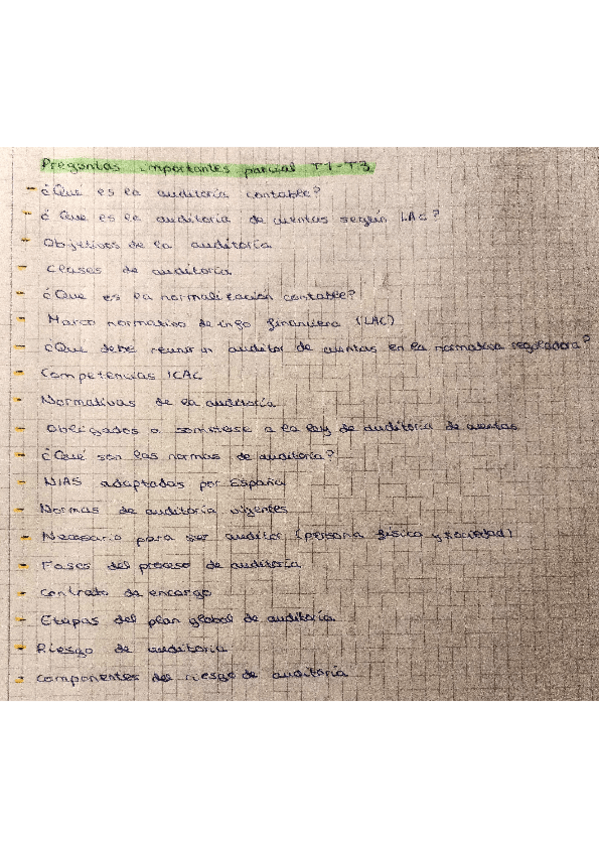 Preguntas importantes parcial T1-T3
- ¿Que es la auditoria contable?
- ¿Que es la auditoria de cuentas según LAC?
- Objetivos de la auditoría
- Clases de auditoria
- ¿Que es la normalización contable?
- Marco normativo de info financiera (LAC)
- ¿Que debe reunir un auditor de cuentas en la normativa reguladora?
- Competencias ICAC
- Normativas de la auditoria
- Obligados a someterse a la ley de auditoria de cuentas
- ¿Qué son las normas de auditoria?
- NIAS adaptadas por España
- Normas de auditoria vigentes
- Necesario para ser auditor (persona física y sociedad)
- Fases del proceso de auditoría
- Contrato de encargo
- Etapas del plan global de auditoría
- Riesgo de auditoria
- Componentes del riesgo de auditoria